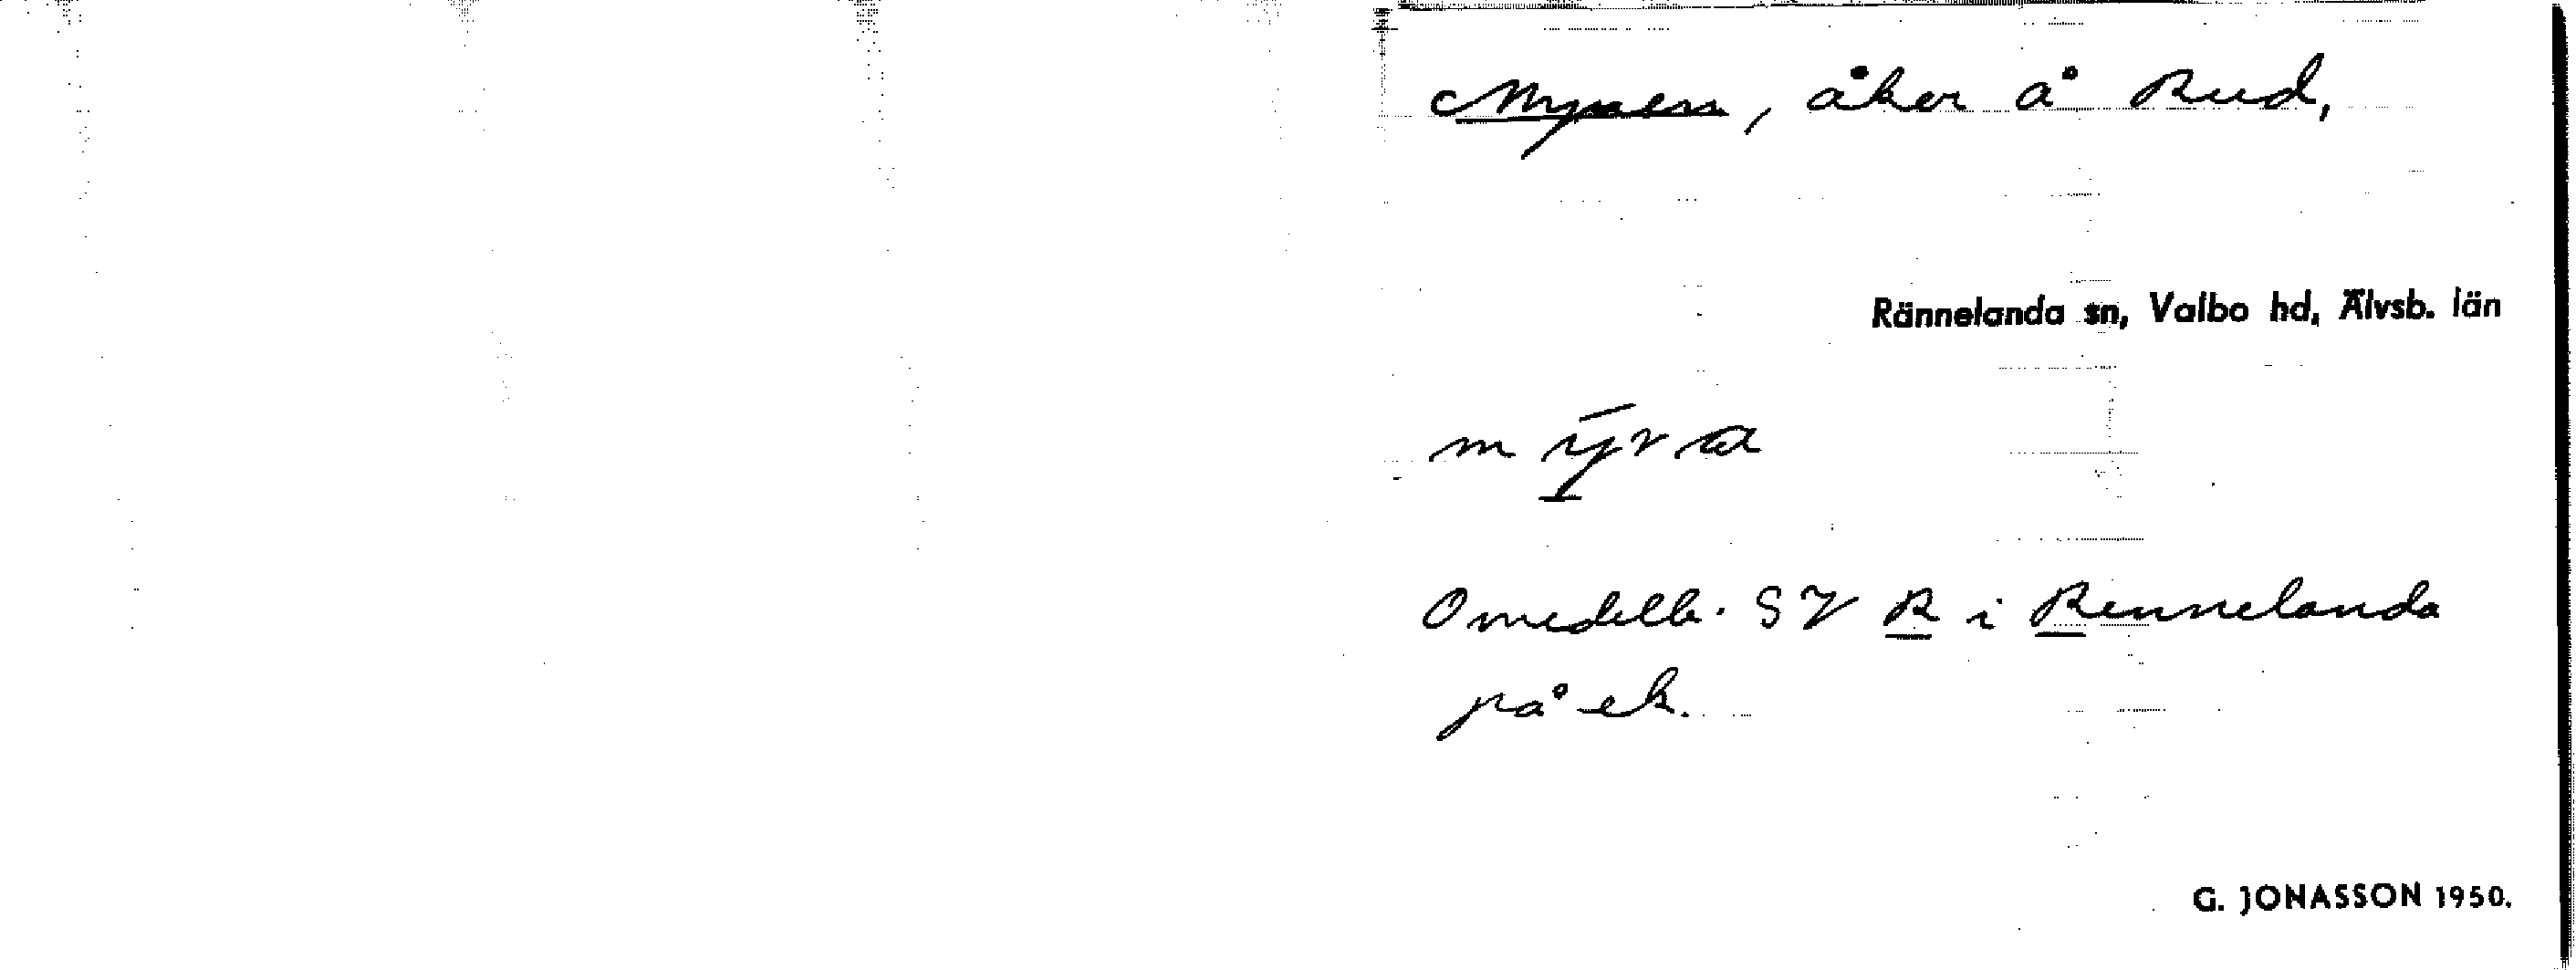 Myren, åker å Rud,
Rännelanda sn, Valbo hd, Älvsb. län
mȳra
Omedelb. SV R i Rennelanda
på ek.
G. JONASSON 1950.